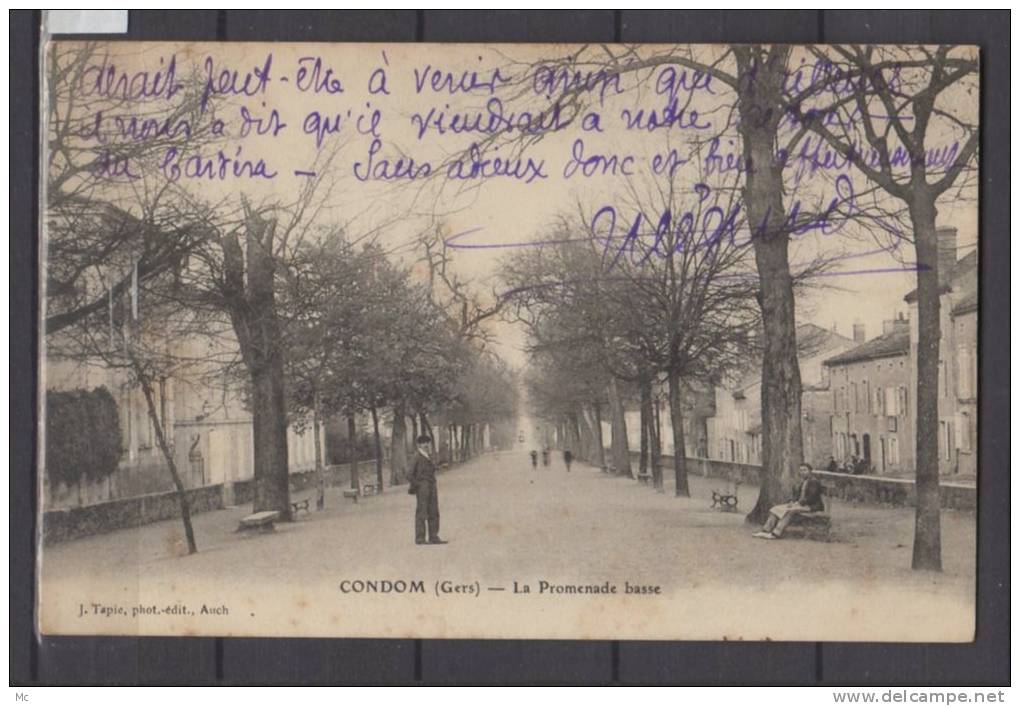 derait peut-être à venir ainsi que d'ailleurs
il nous a dit qu'il viendrait à notre retour
du Cardéra — Sans adieux donc et bien affectueusement
CONDOM (Gers) — La Promenade basse
J. Tapie, phot.-édit., Auch
Mc
www.delcampe.net